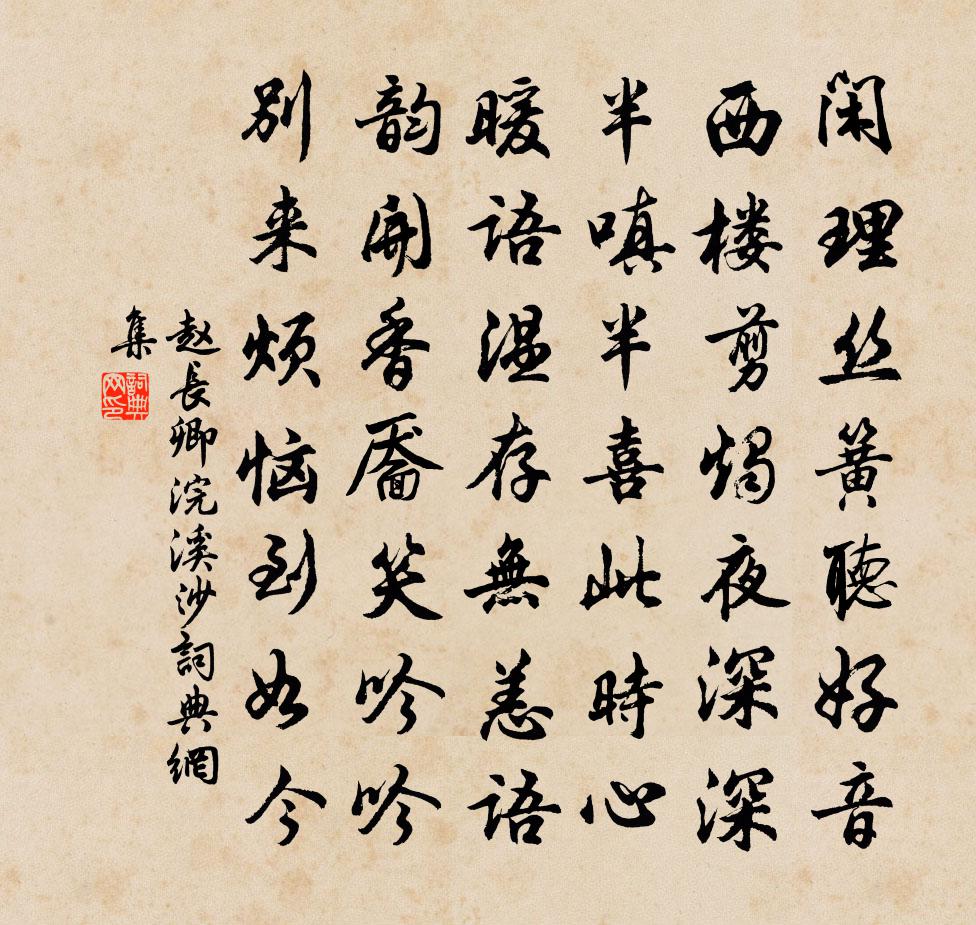 闲理丝簧聽好音
西楼剪烛夜深深
半嗔半喜此時心
暖語温存無恙語
韵開香靥笑吟吟
别来烦恼到如今
赵長卿浣溪沙詞典網
集
詞典网印